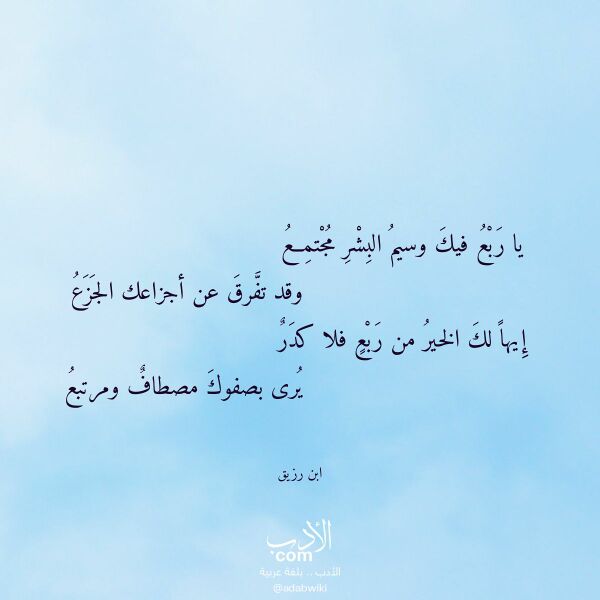 يا رَبْعُ فيكَ وسيمُ البِشْرِ مُجْتمِعُ
وقد تفَّرقَ عن أجزاعك الجَزَعُ
إِيهاً لكَ الخيرُ من رَبْعٍ فلا كدَرٌ
يُرى بصفوكَ مصطافٌ ومرتبعُ
ابن رزيق
الأدب
.com
الأدب .. بلغة عربية
@adabwiki